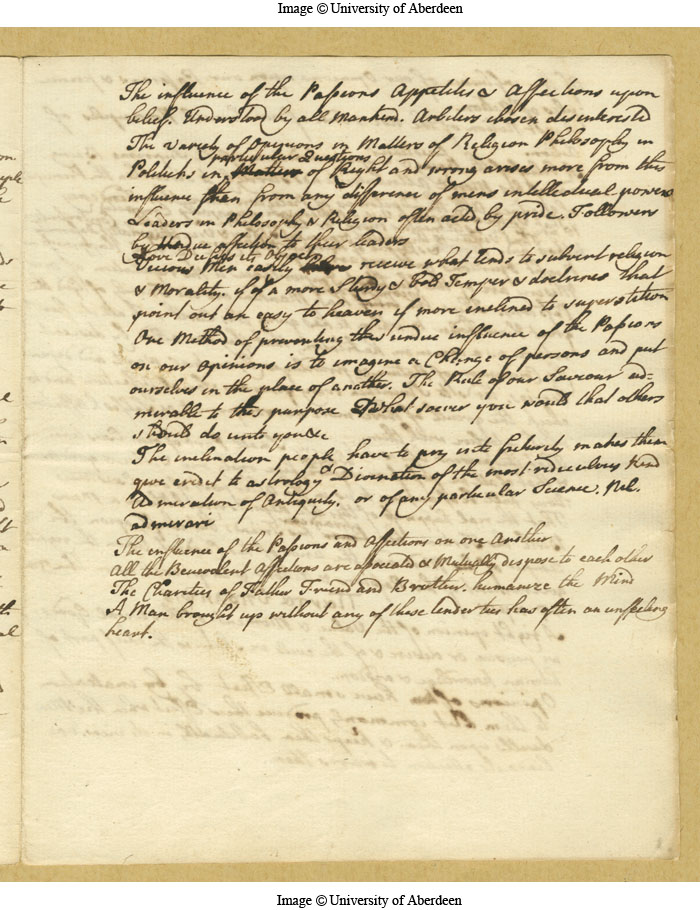 Image © University of Aberdeen
The influence of the Passions Appetites & Affections upon
belief. Understood by all Mankind. Arbiters chosen disinterested
The Variety of Opinions in Matters of Religion Philosophy in
particular Questions
Politicks in Matters of Right and wrong arises more from this
influence than from any difference of mens intellectual powers
Leaders in Philosophy & Religion often acted by pride. Followers
by undue affection to their leaders
Love its Object
Vicious Men easily receive what tends to subvert religion
& Morality. if of a more Sturdy & bold Temper & doctrines that
point out an easy to heaven if more inclined to superstition
One Method of preventing the undue influence of the Passions
on our Opinions is to imagine a Change of persons and put
ourselves in the place of another. The Rule of our Saviour ad-
mirable to this purpose What soever you would that others
should do unto you &c
The inclination people have to pry into futurity makes them
give credit to astrology & Divination of the most ridiculous Kind
Admiration of Antiquity. or of any particular Science. Nil.
admirari
The influence of the Passions and Affections on one Another
All the Benevolent Affections are associated & Mutually dispose to each other
The Charities of Father Friend and Brother. humanize the Mind
A Man brought up without any of these tender ties has often an unfeeling
heart.
Image © University of Aberdeen